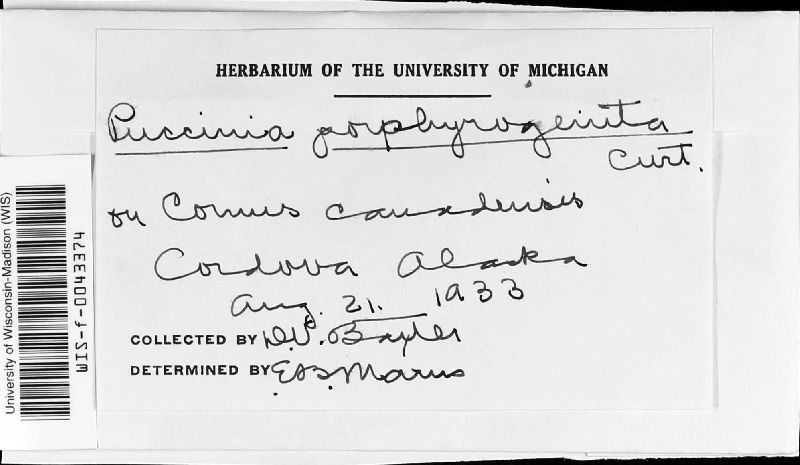 HERBARIUM OF THE UNIVERSITY OF MICHIGAN
Puccinia porphyrogenita
Curt.
on Cornus canadensis
Cordova Alaska
Aug. 21. 1933
COLLECTED BY D.V. Baxter
DETERMINED BY E.B. Mains
University of Wisconsin-Madison (WIS)
WIS-f-0043374